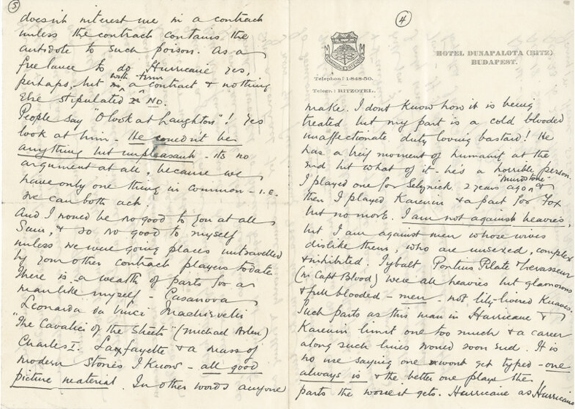 5
doesn't interest me in a contract
unless the contract contains the
antidote to such poison. As a
free lance to do Hurricane yes,
perhaps, but with firm a contract & nothing
else stipulated NO.
People say "O look at Laughton"! Yes
look at him. He couldn't be
anything but unpleasant – its no
argument at all, because we
have only one thing in common – i.e.
we can both act.
And I would be no good to you at all
Sam, & so no good to myself
unless we were going places untravelled
by your other contract players to date
There is a wealth of parts for a
man like myself – Casanova
Leonardo da Vinci Machiavelli
"The Cavalier of the Streets" (Michael Arlen)
Charles I. Laffayette & a mass of
modern stories I know – all good
picture material. In other words anyone
4
HOTEL DUNAPALOTA (RITZ)
BUDAPEST.
Telephon: 1-848-50.
Telegr.: RITZOTEL.
make. I dont know how it is being
treated but my part is a cold blooded
unaffectionate duty loving bastard! He
has a brief moment of humanity at the
end but what of it – he's a horrible person
I played one for Selznick 2 years ago &
then I played Karenin & a part for Fox
but no more. I am not against heavies,
but I am against men whose wives
dislike them, who are unsexed, complex
& inhibited. Tybalt Pontius Pilate Levasseur
(in Capt Blood) were all heavies but glamorous
& full blooded – men – not lily-livered Knaves.
Such parts as this man in Hurricane &
Karenin limit one too much & a career
along such lines would soon end. It is
no use saying one wont get typed – one
always is & the better one plays the
parts the worse it gets. Hurricane as Hurricane